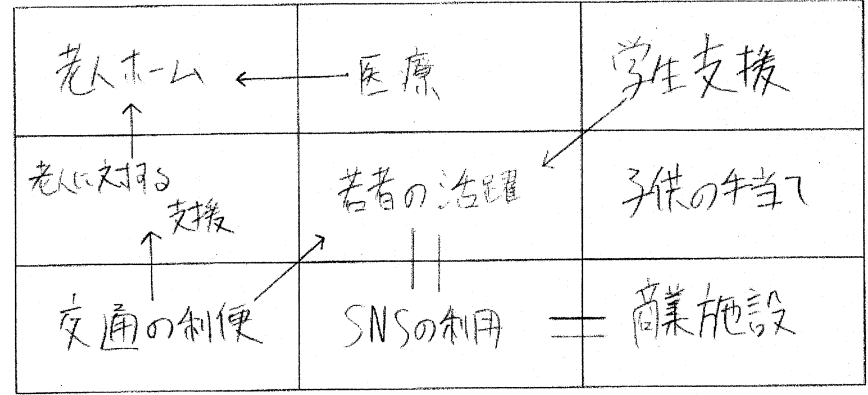 老人ホーム
医療
学生支援
老人に対する
支援
若者の活躍
子供の手当て
交通の利便
SNSの利用
商業施設